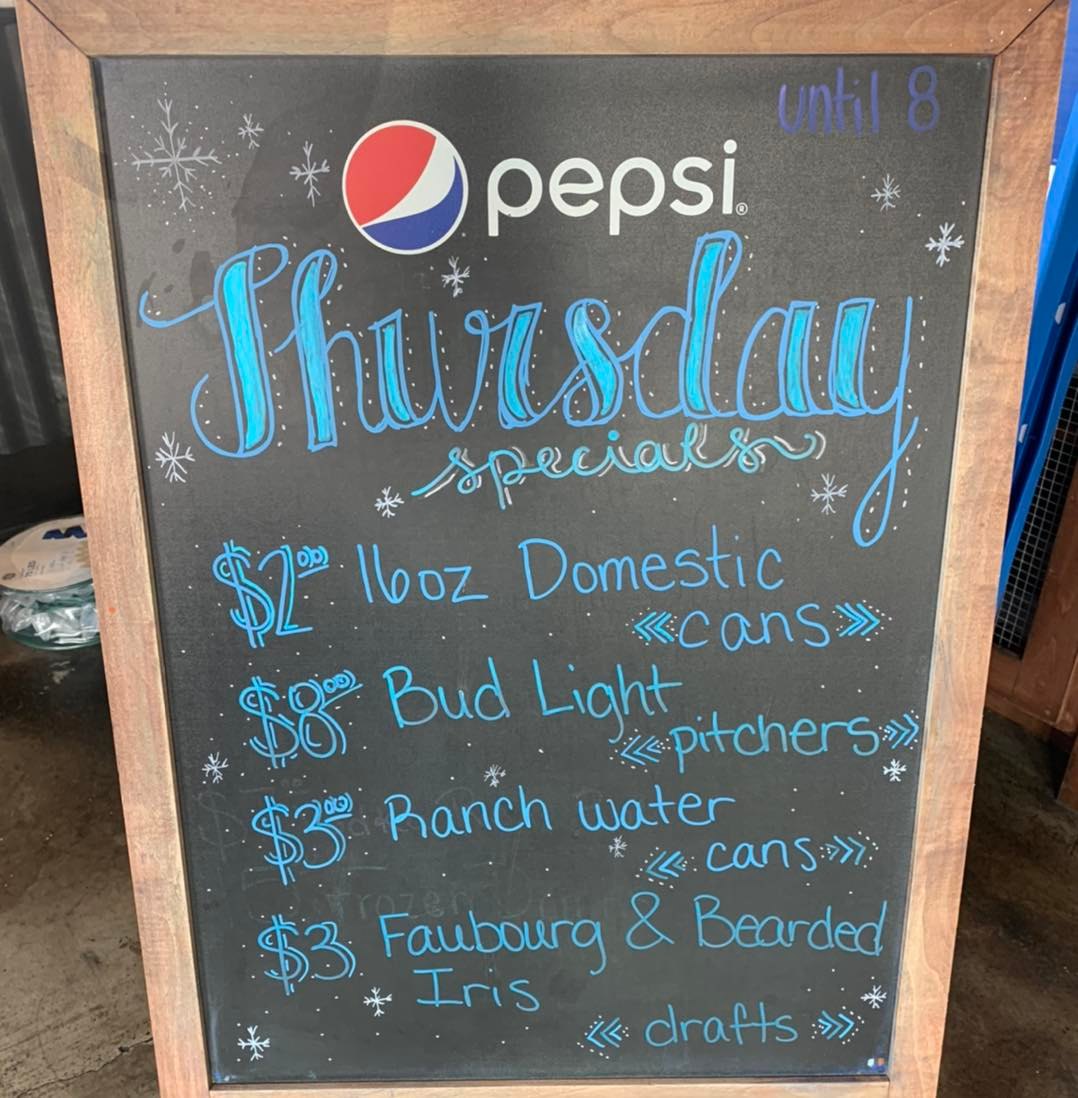 until 8
pepsi®
Thursday
specials
$2.00 16oz Domestic
«cans»
$8.00 Bud Light
«pitchers»
$3.00 Ranch water
« cans»
$3 Faubourg & Bearded
Iris
« drafts »
Frozen